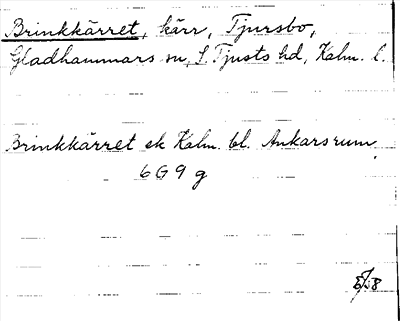 Brinkkärret, kärr, Tjursbo,
Gladhammars sn, S. Tjusts hd, Kalm. l.
Brinkkärret ek Kalm. bl. Ankarsrum
6G9g